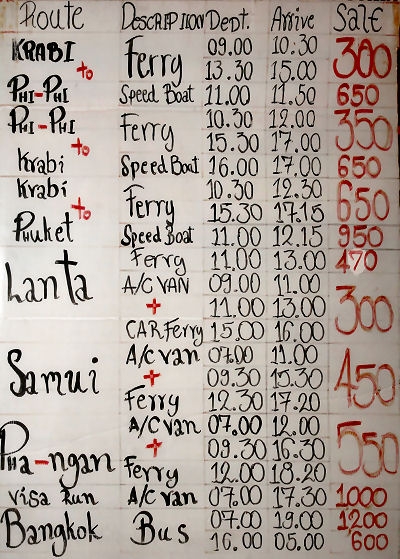 Route Description Dept. Arrive Sale
KRABI Ferry 09.00 10.30 300
to 13.30 15.00
PHI-PHI Speed Boat 11.00 11.50 650
PHI-PHI Ferry 10.30 12.00 350
to 15.30 17.00
Krabi Speed Boat 16.00 17.00 650
Krabi Ferry 10.30 12.30 650
to 15.30 17.15
Phuket Speed Boat 11.00 12.15 950
Lanta Ferry 11.00 13.00 470
A/C VAN 09.00 11.00 300
+ 11.00 13.00
CAR Ferry 15.00 16.00
Samui A/C van 07.00 11.00 450
+ 09.30 15.30
Ferry 12.30 17.20
Pha-ngan A/C van 07.00 12.00 550
+ 09.30 16.30
Ferry 12.00 18.20
Visa Run A/C van 07.00 17.30 1000
Bangkok Bus 07.00 19.00 1200
16.00 05.00 600